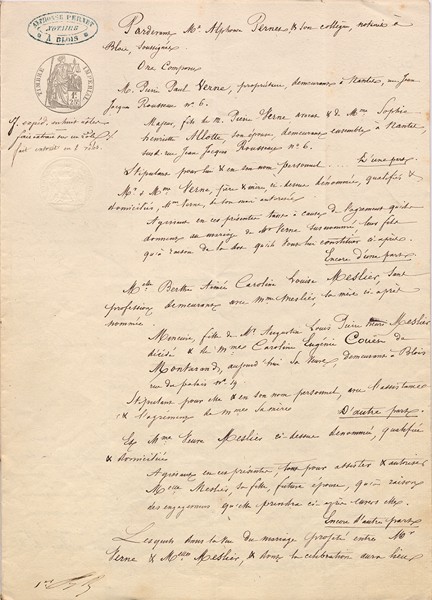 ALPHONSE PERNET
NOTAIRE
A BLOIS
TIMBRE IMPERIAL
Pardevant Me Alphonse Pernet & son collègue, notaires à
Blois soussignés
Ont Comparu
M. Pierre Paul Verne, propriétaire, demeurant à Nantes, rue Jean
Jacques Rousseau no 6.
Majeur, fils de M. Pierre Verne avoué & de Mme Sophie
henriette Allotte, son épouse, demeurant ensemble à Nantes,
susd. rue Jean Jacques Rousseau no 6.
Stipulant pour lui & en son nom personnel D'une part
M. & Mme Verne, père & mère ci-dessus dénommés, qualifiés &
domiciliés, Mme Verne, de son mari autorisée
Agissant en ces présentes tant à cause de l'agrément qu'ils
donnent au mariage de Mr Verne susnommé, leur fils
qu'à raison de la dot qu'ils vont lui constituer ci-après.
Encore d'une part
Melle Berthe Aimée Caroline Louise Meslier, sans
profession demeurant avec Mme Meslier, sa mère ci-après
nommée.
Mineure, fille de Mr Augustin Louis Pierre Meslier
décédé & de Mme Caroline Eugénie
aujourd'hui sa veuve, demeurant à Blois
rue du palais no
Stipulant pour elle & en son nom personnel, avec l'assistance
& l'agrément de Mme sa mère D'autre part
Et Mme Veuve Meslier ci-dessus dénommée, qualifiée
& domiciliée
Agissant en ces présentes, tant pour assister & autoriser
Melle Meslier, sa fille, future épouse, qu'à raison
des engagements qu'elle prendra ci-après envers elle.
Encore d'autre part
Lesquels dans la vue du mariage projeté entre Mr
Verne & Melle Meslier, & dont la célébration aura lieu